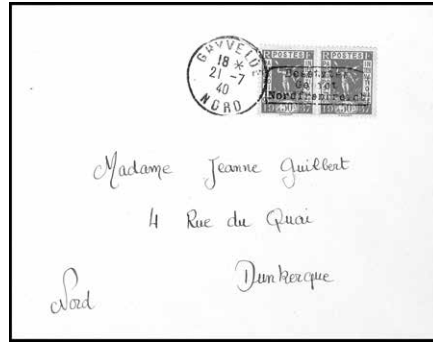 GHYVELDE
18 *
21 -7
40
NORD
POSTES
POSTES
Besetztes
Gebiet
Nordfrankreich
Madame Jeanne Guilbert
4 Rue du Quai
Dunkerque
Nord